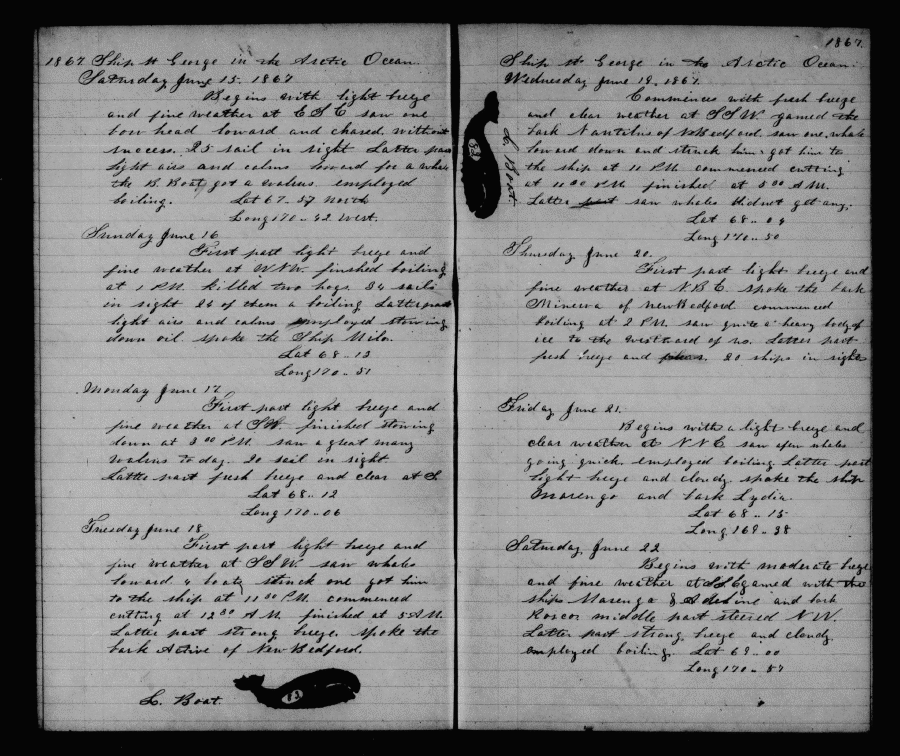 1867 Ship St George in the Arctic Ocean
Saturday June 15. 1867
Begins with light breeze
and fine weather at E S E saw one
bow head loward and chased without
success. 25 sail in sight Latter part
light airs and calms loward for a whale
the B. Boat got a walrus employed
boiling. Lat 67 .. 57 North
Long 170 .. 42 West.
Sunday June 16
First part light breeze and
fine weather at WNW. finshed boiling
at 1 P.M. killed two hogs. 34 sails
in sight 26 of them a boiling Latter part
light airs and calms employed stowing
down oil. spoke the Ship Milo.
Lat 68 .. 13
Long 170 .. 51
Monday June 17
First part light breeze and
fine weather at SW. finished stowing
down at 3 00 P.M. saw a great many
walrus to day. 20 sail in sight.
Latter part fresh breeze and clear at S.
Lat 68 .. 12
Long 170 .. 06
Tuesday June 18
First part light breeze and
fine weather at SSW. saw whales
loward 4 boats struck one got him
to the ship at 11 30 P.M. commenced
cutting at 12 30 A.M. finished at 5 A.M.
Latter part strong breeze. spoke the
bark Active of New Bedford.
L. Boat.
83
1867.
Ship St George in the Arctic Ocean.
Wednesday June 19. 1867.
Commences with fresh breeze
and clear weather at SSW. gamed the
bark Nautilus of N. Bedford. saw one whale
loward down and struck him. got him to
the ship at 11 P.M. commenced cutting
at 11 30 P.M. finished at 5 00 A.M.
Latter part saw whales did not get any.
Lat 68 .. 04
Long 170 .. 50
L. Boat.
83
Thursday June 20.
First part light breeze and
fine weather at N B E. spoke the bark
Minerva of New Bedford commenced
boiling at 2 P.M. saw quite a heavy body of
ice to the westward of us. Latter part
fresh breeze and 20 ships in sight
Friday June 21.
Begins with a light breeze and
clear weather at N N E saw a few whales
going quick. employed boiling. Latter part
light breeze and cloudy. spoke the ship
Marengo and bark Lydia.
Lat 68 .. 15
Long 169 .. 38
Saturday, June 22
Begins with moderate breeze
and fine weather at S S E gamed with the
ships Marengo & Adeline and bark
Roscoe middle part steered N.W.
Latter part strong breeze and cloudy
employed boiling. Lat 69 .. 00
Long 170 .. 57